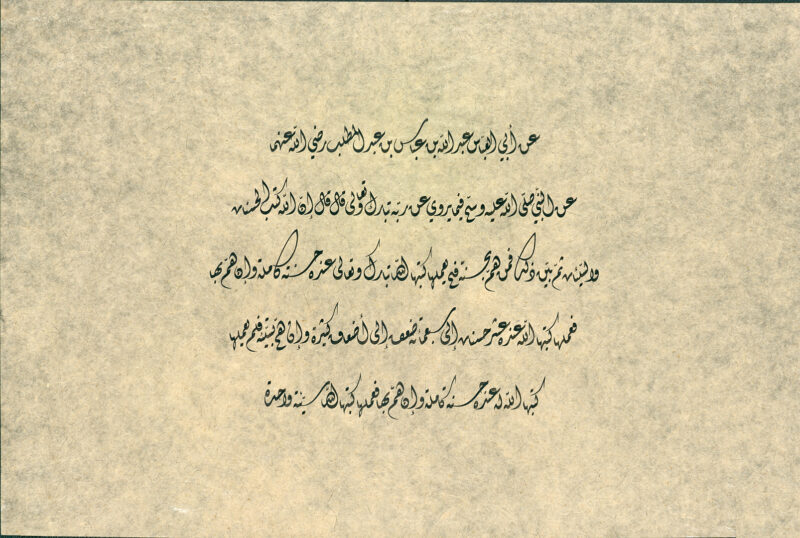 عن أبي العباس عبد الله بن عباس بن عبد المطلب رضي الله عنهما
عن النبي صلى الله عليه وسلم فيما يروي عن ربه تبارك وتعالى قال قال إن الله كتب الحسنات
والسيئات ثم بين ذلك فمن هم بحسنة فلم يعملها كتبها الله تبارك وتعالى عنده حسنة كاملة وإن هم بها
فعملها كتبها الله عنده عشر حسنات إلى سبعمائة ضعف إلى أضعاف كثيرة وإن هم بسيئة فلم يعملها
كتبها الله له عنده حسنة كاملة وإن هم بها فعملها كتبها الله سيئة واحدة